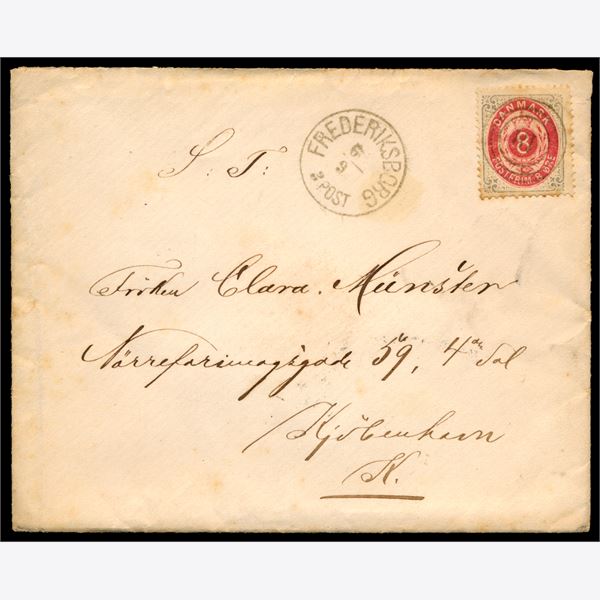 S. T.
FREDERIKSBORG
3 POST
DANMARK
8
POSTFRIM. 8 ØRE
Fröken Clara Münster
Nörrefarimagsgade 59, 4de Sal
Kjöbenhavn
K.